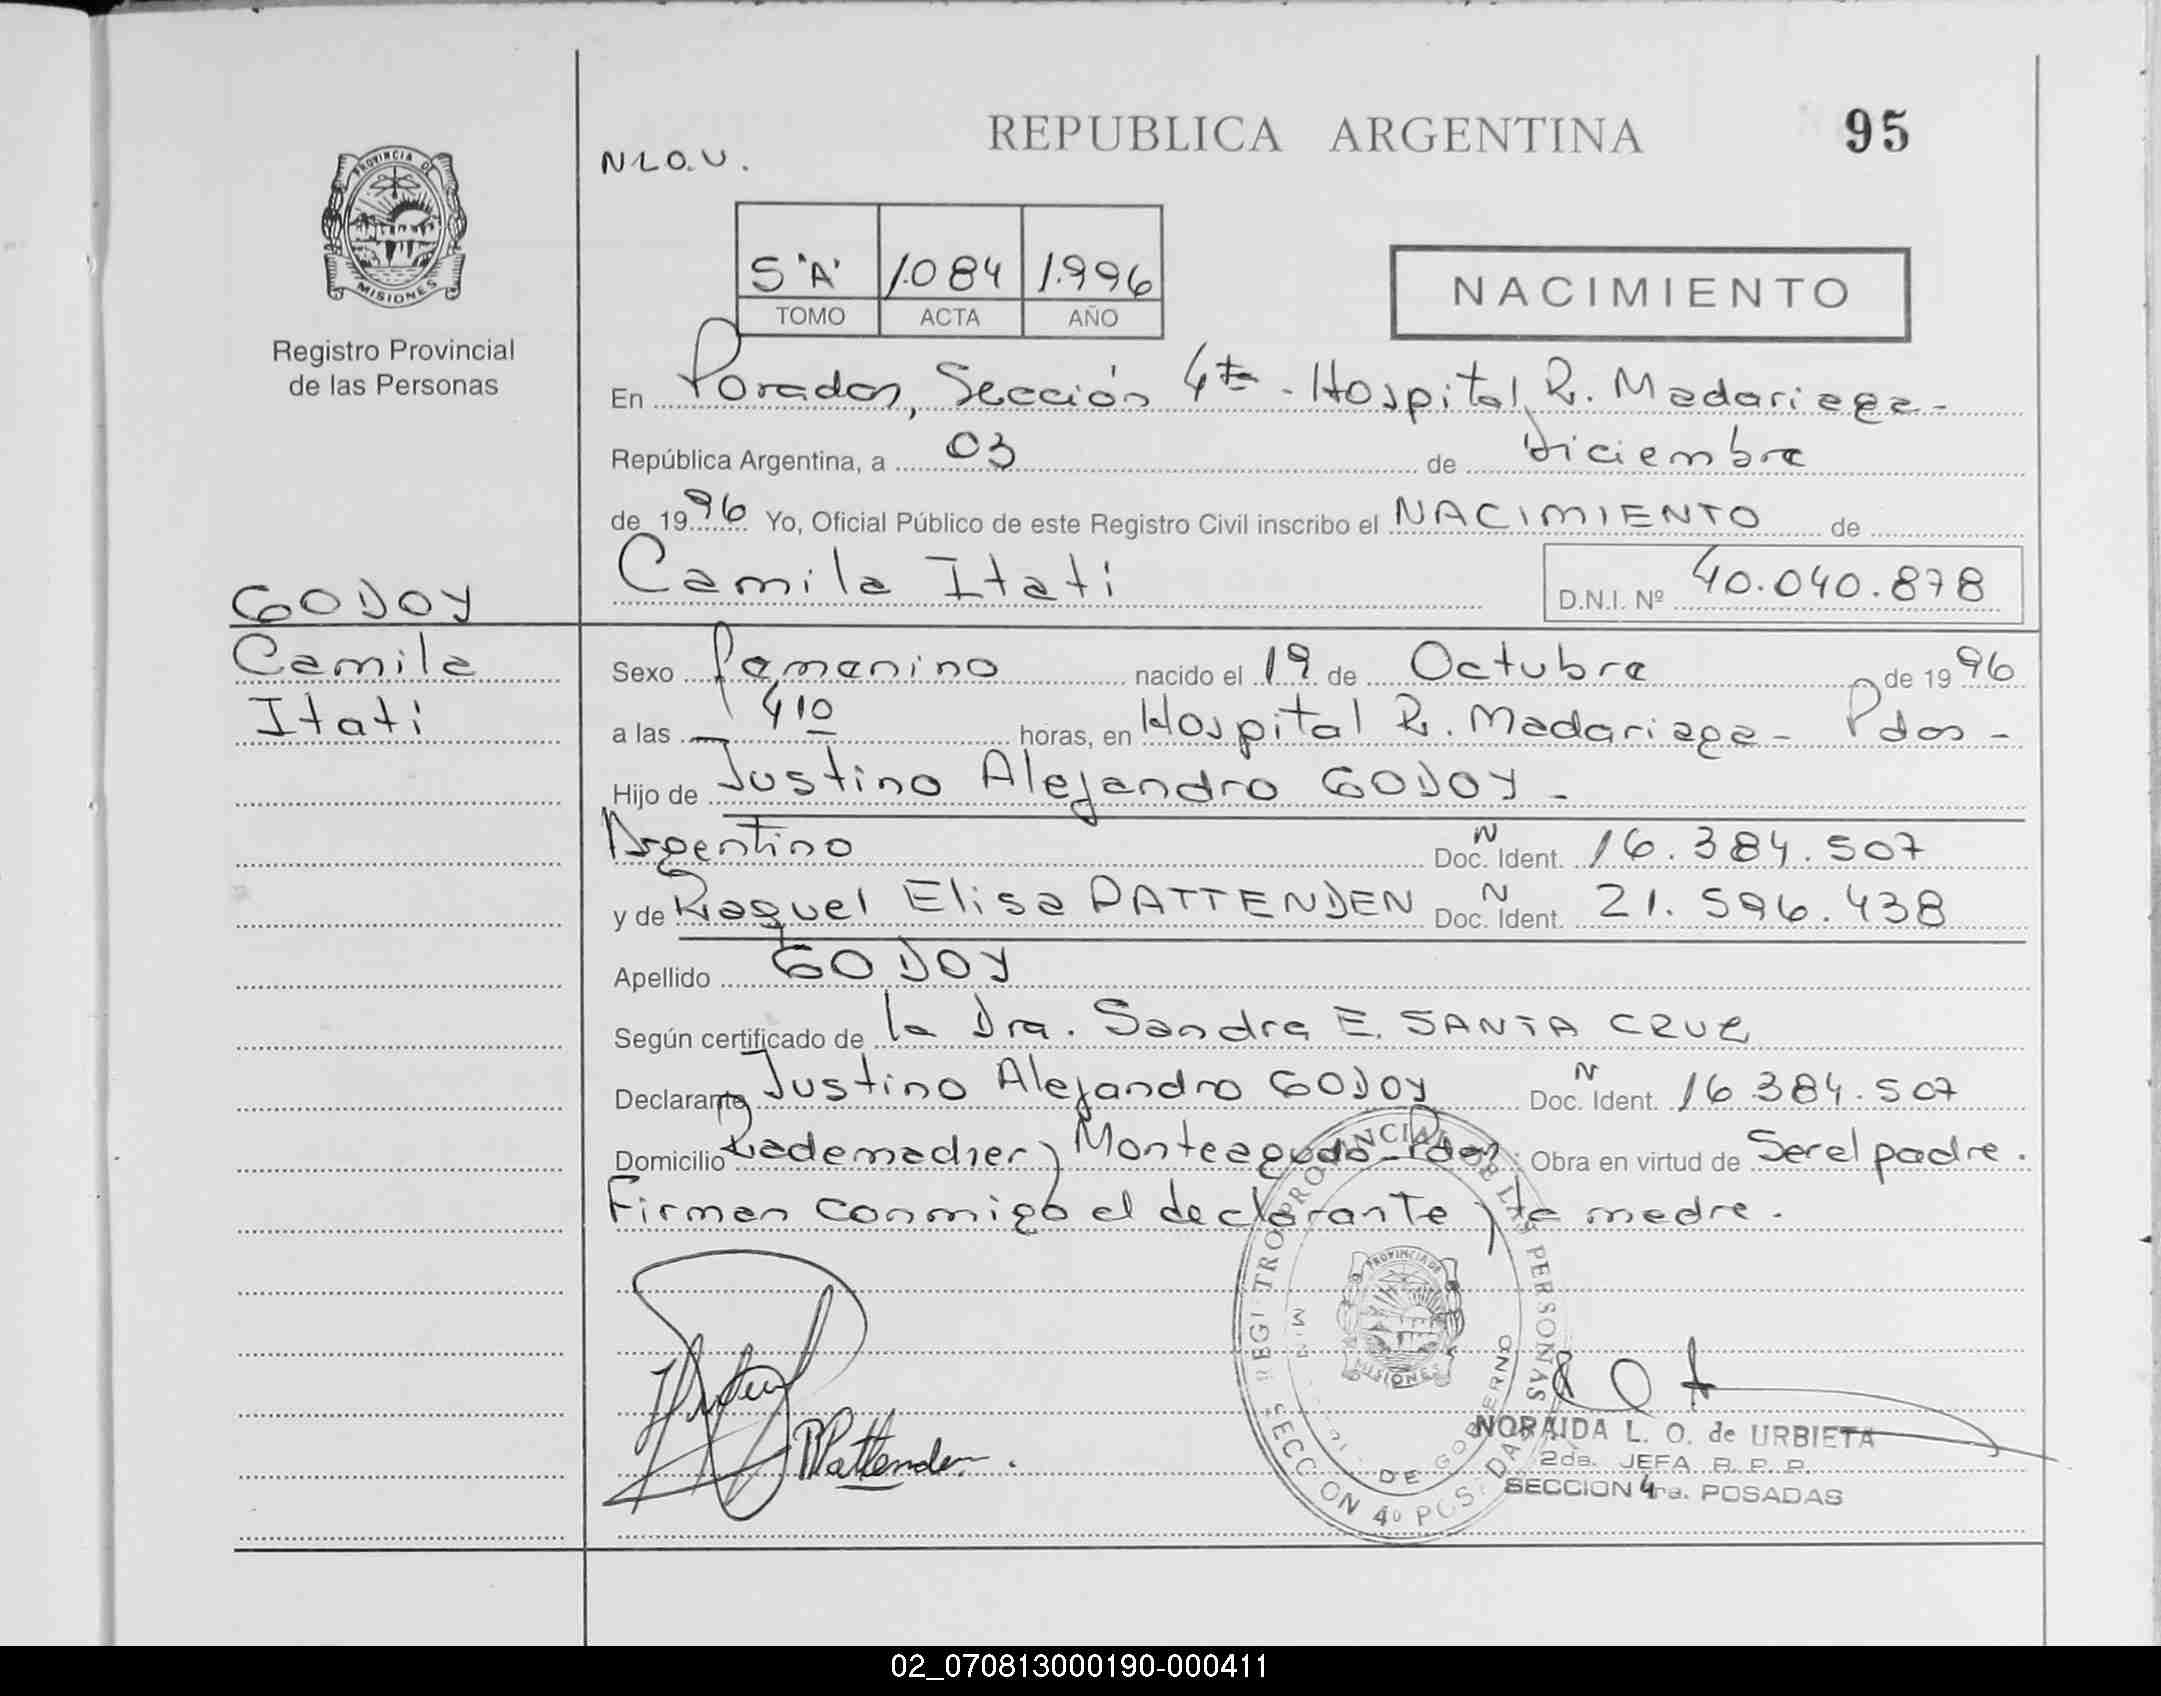 REPUBLICA ARGENTINA
95
N.L.O.U.
PROVINCIA DE
MISIONES
Registro Provincial
de las Personas
5 "A" 1.084 1.996
TOMO ACTA AÑO
NACIMIENTO
En Posadas, Sección 4ta - Hospital R. Madariaga -
República Argentina, a 03 de Diciembre
de 1996 Yo, Oficial Público de este Registro Civil inscribo el NACIMIENTO de
Camila Itati D.N.I. Nº 40.040.878
GODOY
Camila
Itati
Sexo femenino nacido el 19 de Octubre de 1996
a las 4 10 horas, en Hospital R. Madariaga - Pdas -
Hijo de Justino Alejandro GODOY -
Argentino Doc. Ident. N 16.384.507
y de Raquel Elisa PATTENDEN Doc. Ident. N 21.596.438
Apellido GODOY
Según certificado de la Dra. Sandra E. SANTA CRUZ
Declarante Justino Alejandro GODOY Doc. Ident. N 16.384.507
Domicilio Rademacher y Monteagudo - Pdas Obra en virtud de Ser el padre.
Firman conmigo el declarante y la madre.
REGISTRO PROVINCIAL DE LAS PERSONAS
PROVINCIA DE
MISIONES
DE GOBIERNO
SECCION 4º POSADAS
RPattenden.
NORAIDA L. O. de URBIETA
2da. JEFA R. P. P.
SECCION 4ra. POSADAS
02_070813000190-000411